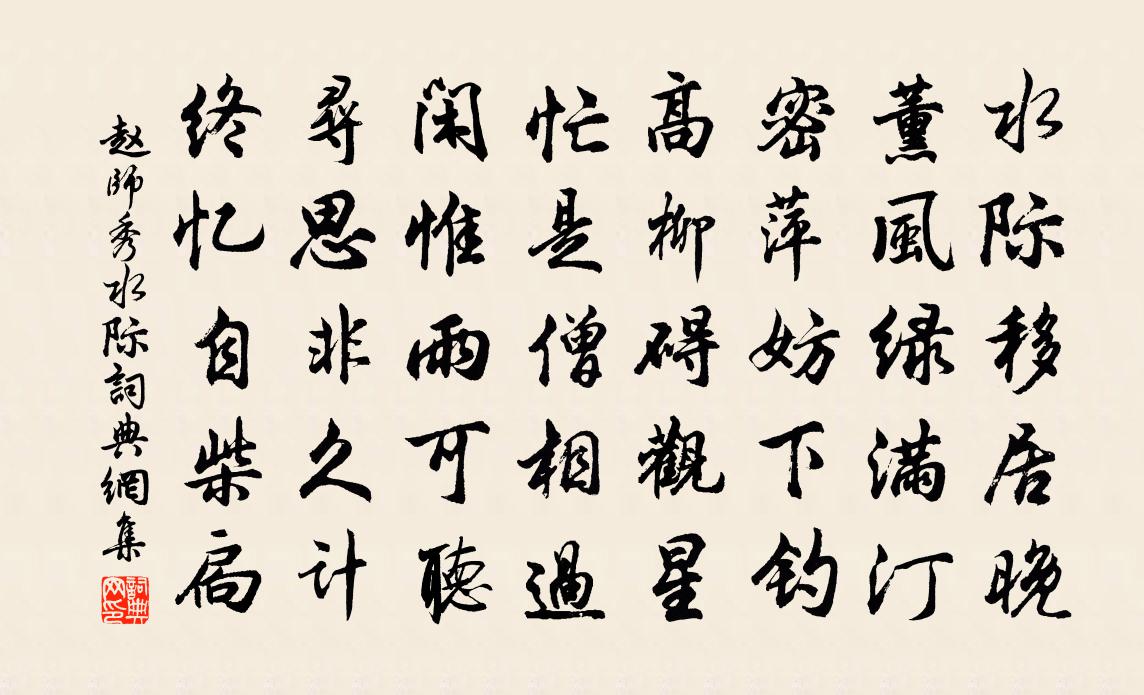 水际移居晚
薰風绿满汀
密萍妨下钓
髙柳碍觀星
忙是僧相過
闲惟雨可聽
尋思非久计
终忆自柴扃
赵師秀水际詞典網集
詞典网印